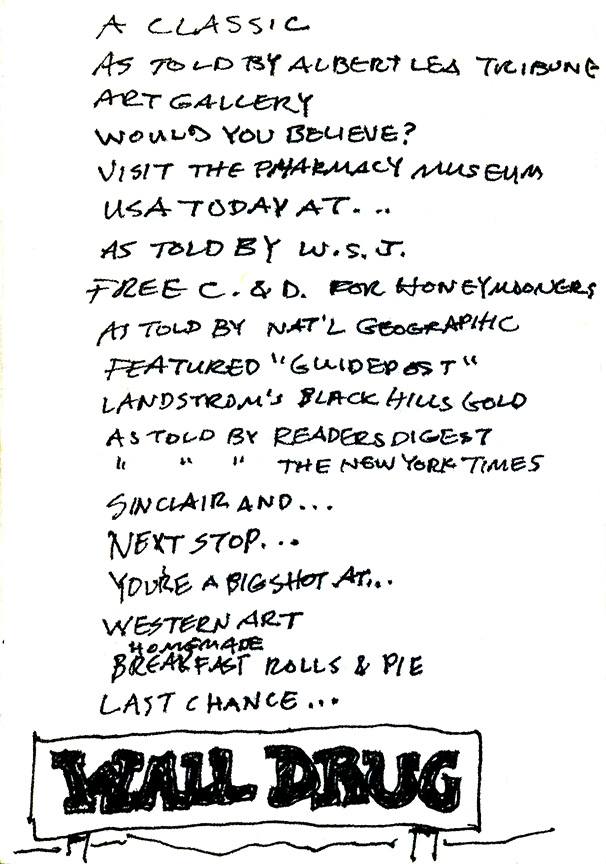 A CLASSIC
AS TOLD BY ALBERT LEA TRIBUNE
ART GALLERY
WOULD YOU BELIEVE?
VISIT THE PHARMACY MUSEUM
USA TODAY AT...
AS TOLD BY W.S.J.
FREE C. & D. FOR HONEYMOONERS
AS TOLD BY NAT'L GEOGRAPHIC
FEATURED "GUIDEPOST"
LANDSTROM'S BLACK HILLS GOLD
AS TOLD BY READERS DIGEST
" " " THE NEW YORK TIMES
SINCLAIR AND...
NEXT STOP...
YOU'RE A BIG SHOT AT...
WESTERN ART
HOMEMADE
BREAKFAST ROLLS & PIE
LAST CHANCE...
WALL DRUG